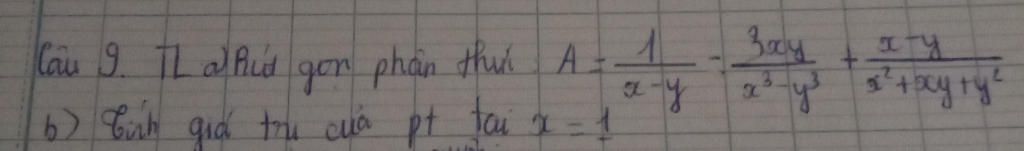 Câu 9. TL a) Rút gọn phân thức A = 1/(x-y) - 3xy/(x³-y³) + (x-y)/(x²+xy+y²)
b) Tính giá trị của pt tại x = 1